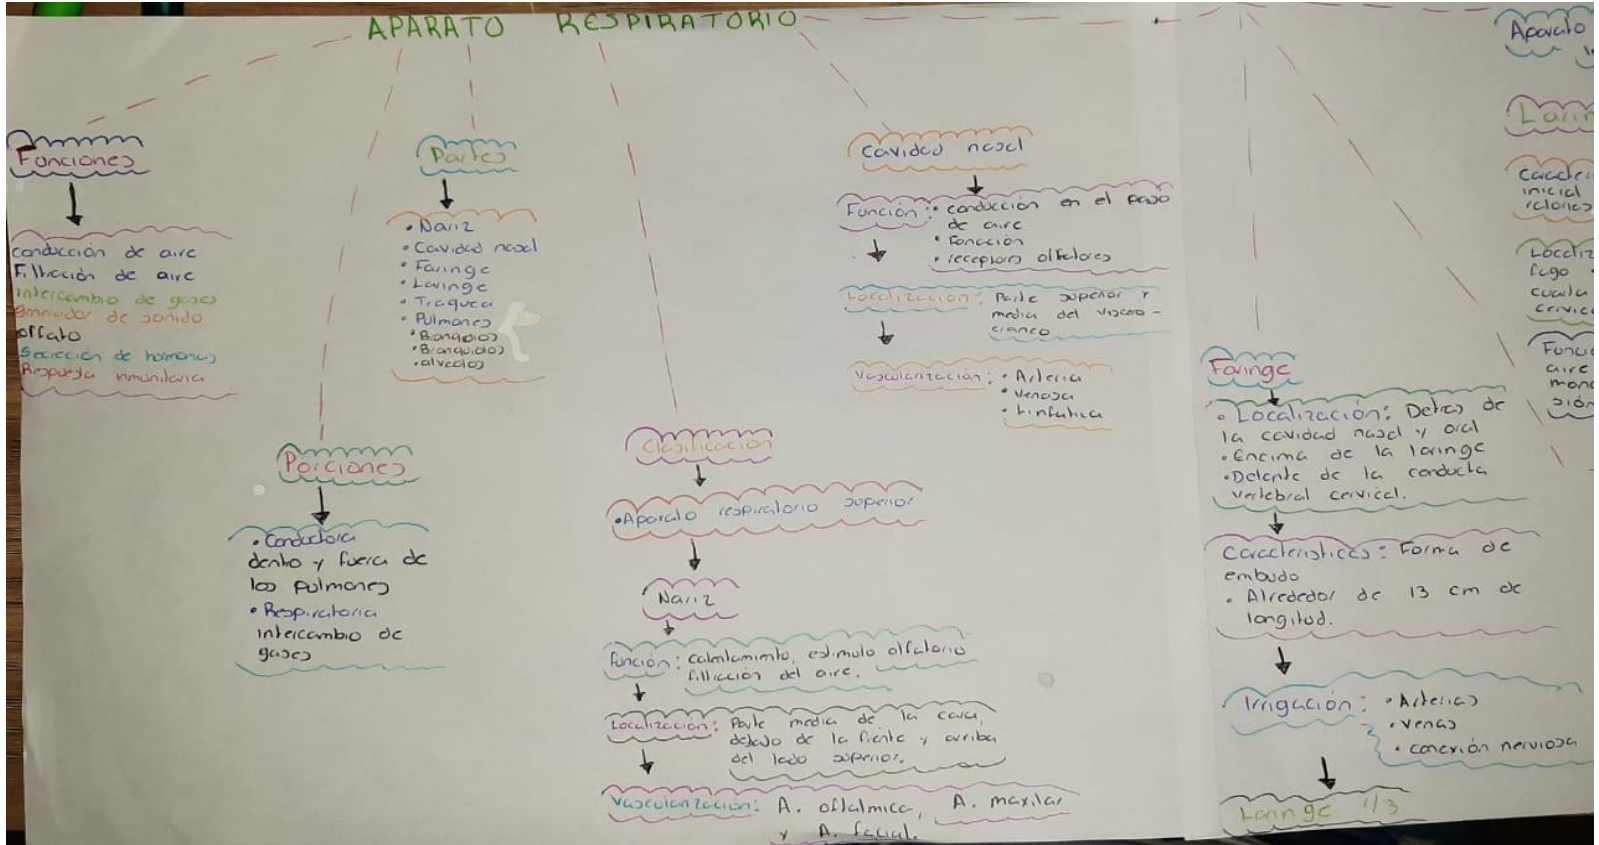 APARATO RESPIRATORIO
Funciones
conducción de aire
Filtración de aire
Intercambio de gases
generador de sonido
olfato
Secreción de hormonas
Respuesta inmunitaria
Partes
• Nariz
• Cavidad nasal
• Faringe
• Laringe
• Traquea
• Pulmones
• Bronquios
• Bronquiolos
• alveolos
Porciones
• Conductora
dentro y fuera de
los pulmones
• Respiratoria
intercambio de
gases
Clasificación
• Aparato respiratorio superior
Nariz
Función: calentamiento, estimulo olfatorio
filtración del aire.
Localización: Parte media de la cara,
debajo de la frente y arriba
del labio superior.
Vascularización: A. oftalmica, A. maxilar
y A. facial.
Cavidad nasal
Función: • conducción en el paso
de aire
• Fonación
• receptores olfatores
Localización: Parte superior y
media del viscero-
craneo
Vascularización: • Arteria
• Venosa
• Linfatica
Faringe
• Localización: Detras de
la cavidad nasal y oral
• Encima de la laringe
• Delante de la conducta
vertebral cervical.
Caracteristicas: Forma de
embudo
• Alrededor de 13 cm de
longitud.
Irrigación: • Arterias
• Venas
• conexión nerviosa
Laringe 1/3
Aparato
Larin
Caracter
inicial
Localiz
cuarta
cervic
Funció
aire